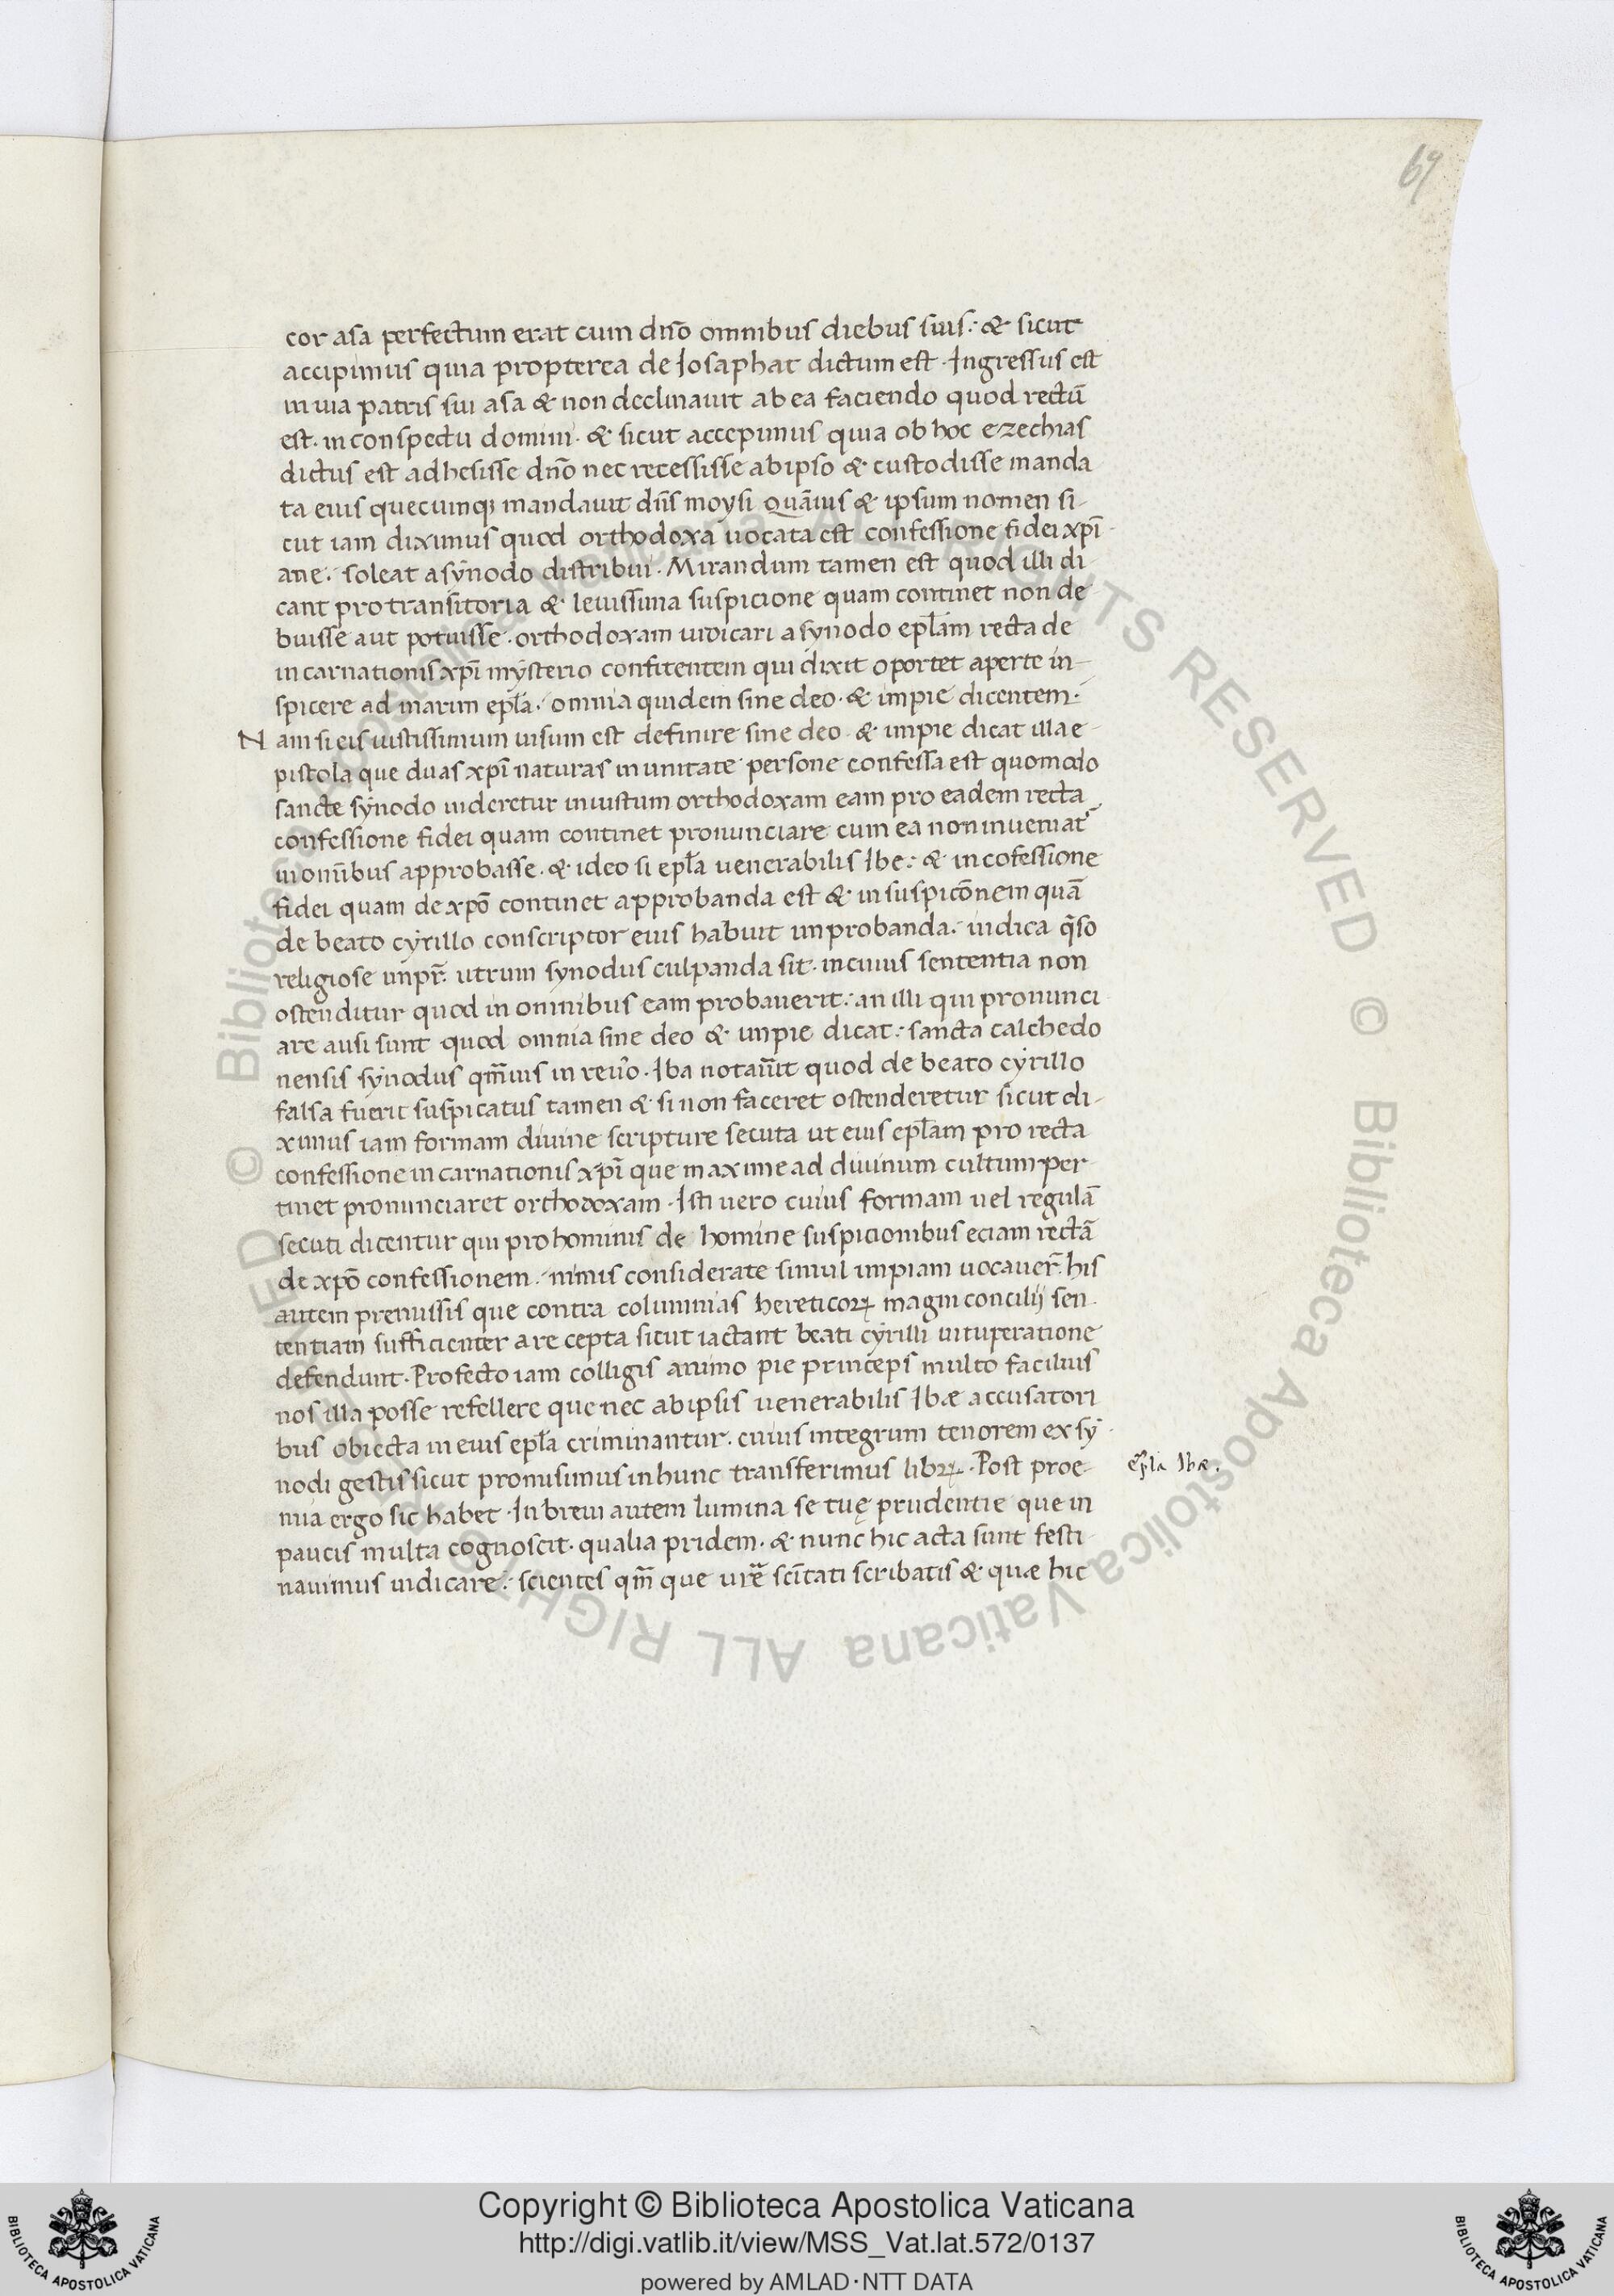 69
cor asa perfectum erat cum dn̄o omnibus diebus suis: & sicut
accipimus quia propterea de Josaphat dictum est. Ingressus est
in uia patris sui asa & non declinauit ab ea faciendo quod rectū
est. in conspectu domini. & sicut accepimus quia ob hoc ezechias
dictus est adhesisse dn̄o nec recessisse ab ipso & custodisse manda
ta eius quecumq; mandauit dn̄s moysi. Quāuis & ipsum nomen si-
cut iam diximus quod orthodoxa uocata est confessione fidei xp̄i
ane. soleat a synodo distribui. Mirandum tamen est quod illi di
cant pro transitoria & leuissima suspicione quam continet non de
buisse aut potuisse. orthodoxam iudicari a synodo ep̄lam recta de
incarnationis xp̄i mysterio confitentem qui dixit oportet aperte in-
spicere ad marim ep̄la. omnia quidem sine deo. & impie dicentem.
Nam si eis iustissimum uisum est definire sine deo & impie dicat illa e-
pistola que duas xp̄i naturas in unitate persone confessa est quomodo
sancte synodo uideretur iniustum orthodoxam eam pro eadem recta
confessione fidei quam continet pronunciare cum ea non inueniat᷑
in omīibus approbasse. & ideo si ep̄la uenerabilis Ibe: & in cofessione
fidei quam de xp̄o continet approbanda est & in suspicōnem quā
de beato cyrillo conscriptor eius habuit improbanda. iudica q̄so
religiose impr̄. utrum synodus culpanda sit. in cuius sententia non
ostenditur quod in omnibus eam probauerit: an illi qui pronunci
are ausi sunt quod omnia sine deo & impie dicat: sancta calchedo
nensis synodus qm̄uis in reūo. Iba notauīt quod de beato cyrillo
falsa fuerit suspicatus tamen & si non faceret ostenderetur sicut di-
ximus iam formam diuine scripture secuta ut eius ep̄lam pro recta
confessione incarnationis xp̄i que maxime ad diuinum cultum per
tinet pronunciaret orthodoxam. Isti uero cuius formam uel regulā
secuti dicentur qui pro hominis de homine suspicionibus eciam rectā
de xp̄o confessionem. nimis considerate simul impiam uocauer̄. his
autem premissis que contra columnias hereticoꝝ magni concilij sen
tentiam sufficienter a recepta sicut iactant beati cyrilli uituperatione
defendunt. Profecto iam colligis animo pie princeps multo facilius
nos illa posse refellere que nec ab ipsis uenerabilis Ibæ accusatori
bus obiecta in eius ep̄la criminantur. cuius integrum tenorem ex sy
nodi gestis sicut promisimus in hunc transferimus libꝝ. Post proe-
mia ergo sic habet. In breui autem lumina se tuę prudentie que in
paucis multa cognoscit. qualia pridem. & nunc hic acta sunt festi
nauimus indicare. scientes qm̄ que ur̄e scītati scribatis & quæ hic
ep̄la Ibæ.
© Biblioteca Apostolica Vaticana ALL RIGHTS RESERVED © Biblioteca Apostolica Vaticana ALL RIGHTS RESERVED
BIBLIOTECA APOSTOLICA VATICANA
Copyright © Biblioteca Apostolica Vaticana
http://digi.vatlib.it/view/MSS_Vat.lat.572/0137
powered by AMLAD·NTT DATA
BIBLIOTECA APOSTOLICA VATICANA